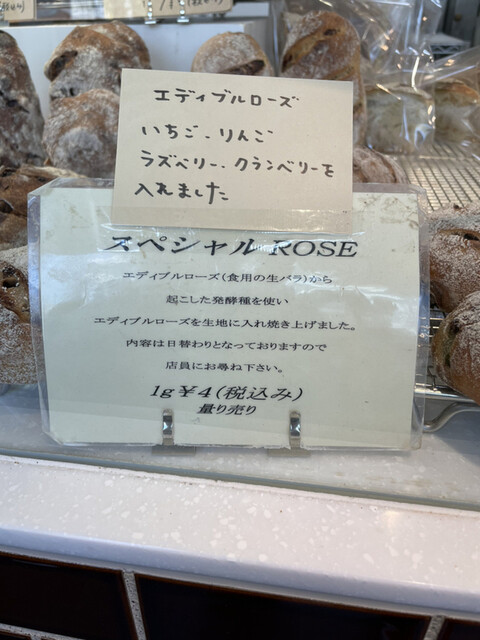 エディブルローズ
いちご、りんご
ラズベリー、クランベリーを
入れました
スペシャル ROSE
エディブルローズ(食用の生バラ)から
起こした発酵種を使い
エディブルローズを生地に入れ焼き上げました。
内容は日替わりとなっておりますので
店員にお尋ね下さい。
1g ¥4(税込み)
量り売り